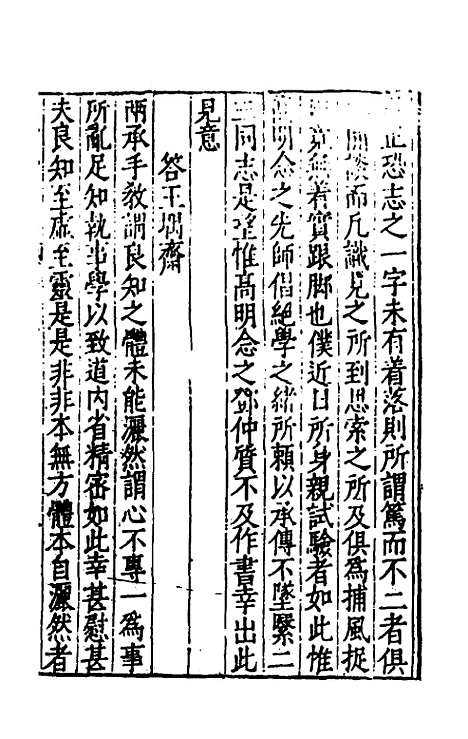 正恐志之一字未有着落則所謂篤而不二者俱
而凡識見之所到思索之所及俱爲捕風捉
竟無着實跟脚也僕近日所身親試驗者如此惟
明念之先師倡絕學之緒所頼以承傳不墜緊二
三同志是望惟高明念之鄧仲質不及作書幸出此
見意
答王堣齋
兩承手敎謂良知之體未能灑然謂心不專一爲事
所亂足知執事學以致道内省精密如此幸甚慰甚
夫良知至虛至靈是是非非本無方體本自灑然者